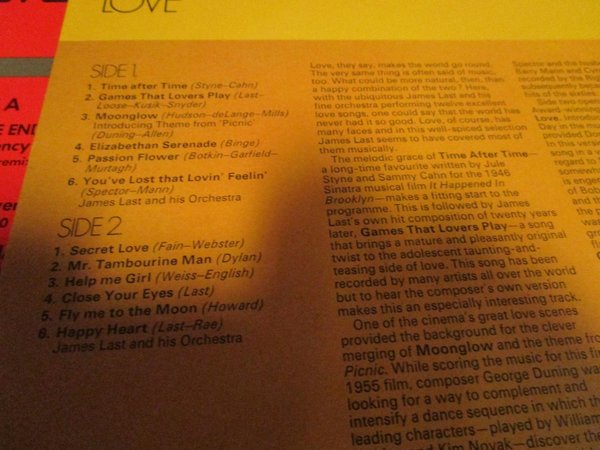 LOVE
A
E END
ency
remix
SIDE 1
1. Time after Time (Styne–Cahn)
2. Games That Lovers Play (Last–
Loose–Kusik–Snyder)
3. Moonglow (Hudson–deLange–Mills)
Introducing Theme from 'Picnic'
(Duning–Allen)
4. Elizabethan Serenade (Binge)
5. Passion Flower (Botkin–Garfield–
Murtagh)
6. You've Lost that Lovin' Feelin'
(Spector–Mann)
James Last and his Orchestra
SIDE 2
1. Secret Love (Fain–Webster)
2. Mr. Tambourine Man (Dylan)
3. Help me Girl (Weiss–English)
4. Close Your Eyes (Last)
5. Fly me to the Moon (Howard)
6. Happy Heart (Last–Rae)
James Last and his Orchestra
Love, they say, makes the world go round.
The very same thing is often said of music,
too. What could be more natural, then, than
a happy combination of the two? Here,
with the ubiquitous James Last and his
fine orchestra performing twelve excellent
love songs, one could say that the world has
never had it so good. Love, of course, has
many faces and in this well-spiced selection
James Last seems to have covered most of
them musically.
The melodic grace of Time After Time—
a long-time favourite written by Jule
Styne and Sammy Cahn for the 1946
Sinatra musical film It Happened In
Brooklyn—makes a fitting start to the
programme. This is followed by James
Last's own hit composition of twenty years
later, Games That Lovers Play—a song
that brings a mature and pleasantly original
twist to the adolescent taunting-and-
teasing side of love. This song has been
recorded by many artists all over the world
but to hear the composer's own version
makes this an especially interesting track.
One of the cinema's great love scenes
provided the background for the clever
merging of Moonglow and the theme from
Picnic. While scoring the music for this fi
1955 film, composer George Duning wa
looking for a way to complement and
intensify a dance sequence in which th
leading characters—played by William
and Kim Novak—discover the
Spector and the husba
Barry Mann and Cyn
recorded by the Righ
subsequently beca
hits of the sixties
Side two open
Award-winn
Love, introd
Day in the m
provided Dor
In this versi
song in a v
regard to
somewh
is enge
of Bob
and th